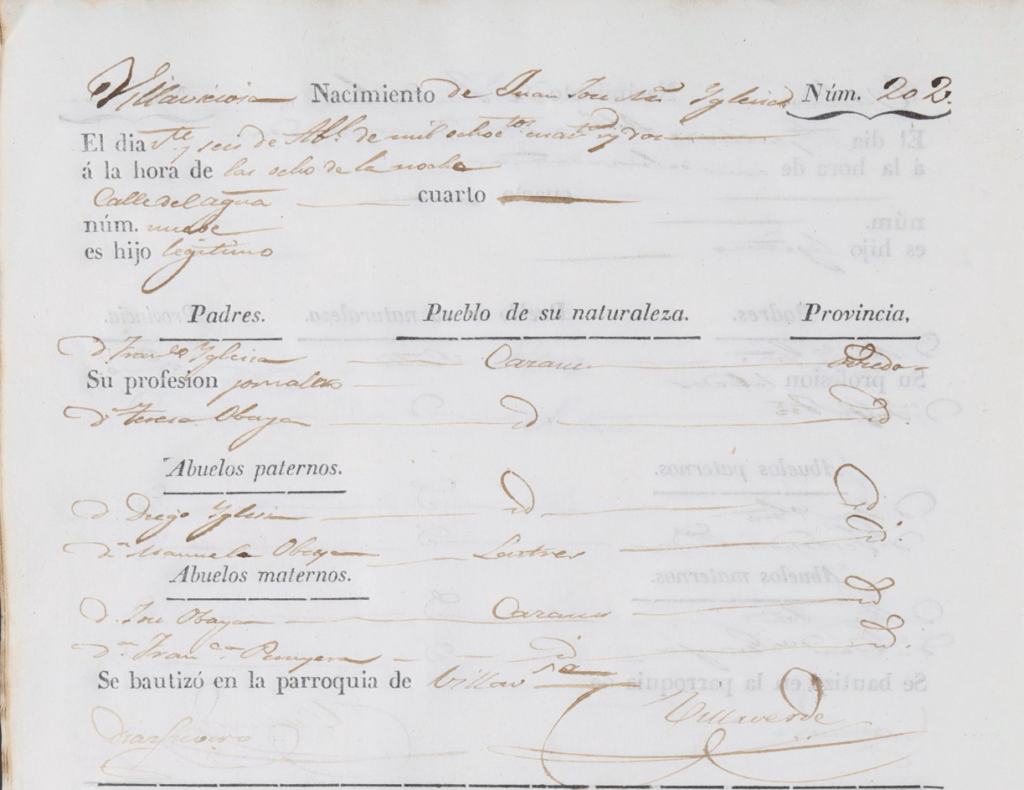 Villaviciosa Nacimiento de Juan José Mª Iglesia Núm. 202.
El dia Vte y seis de Abl. de mil ochoctos cuarenta y dos
á la hora de las ocho de la noche
Calle del agua cuarto
núm. nuebe
es hijo legitimo
Padres. Pueblo de su naturaleza. Provincia.
D. Franco Iglesia Carann Oviedo
Su profesion jornalero
Dª Teresa Obaya id id.
Abuelos paternos.
D. Diego Iglesia id id.
Dª Manuela Obaya Lastres id.
Abuelos maternos.
D. José Obaya id.
Dª Franca id id.
Se bautizó en la parroquia de Villavsa
Villaverde